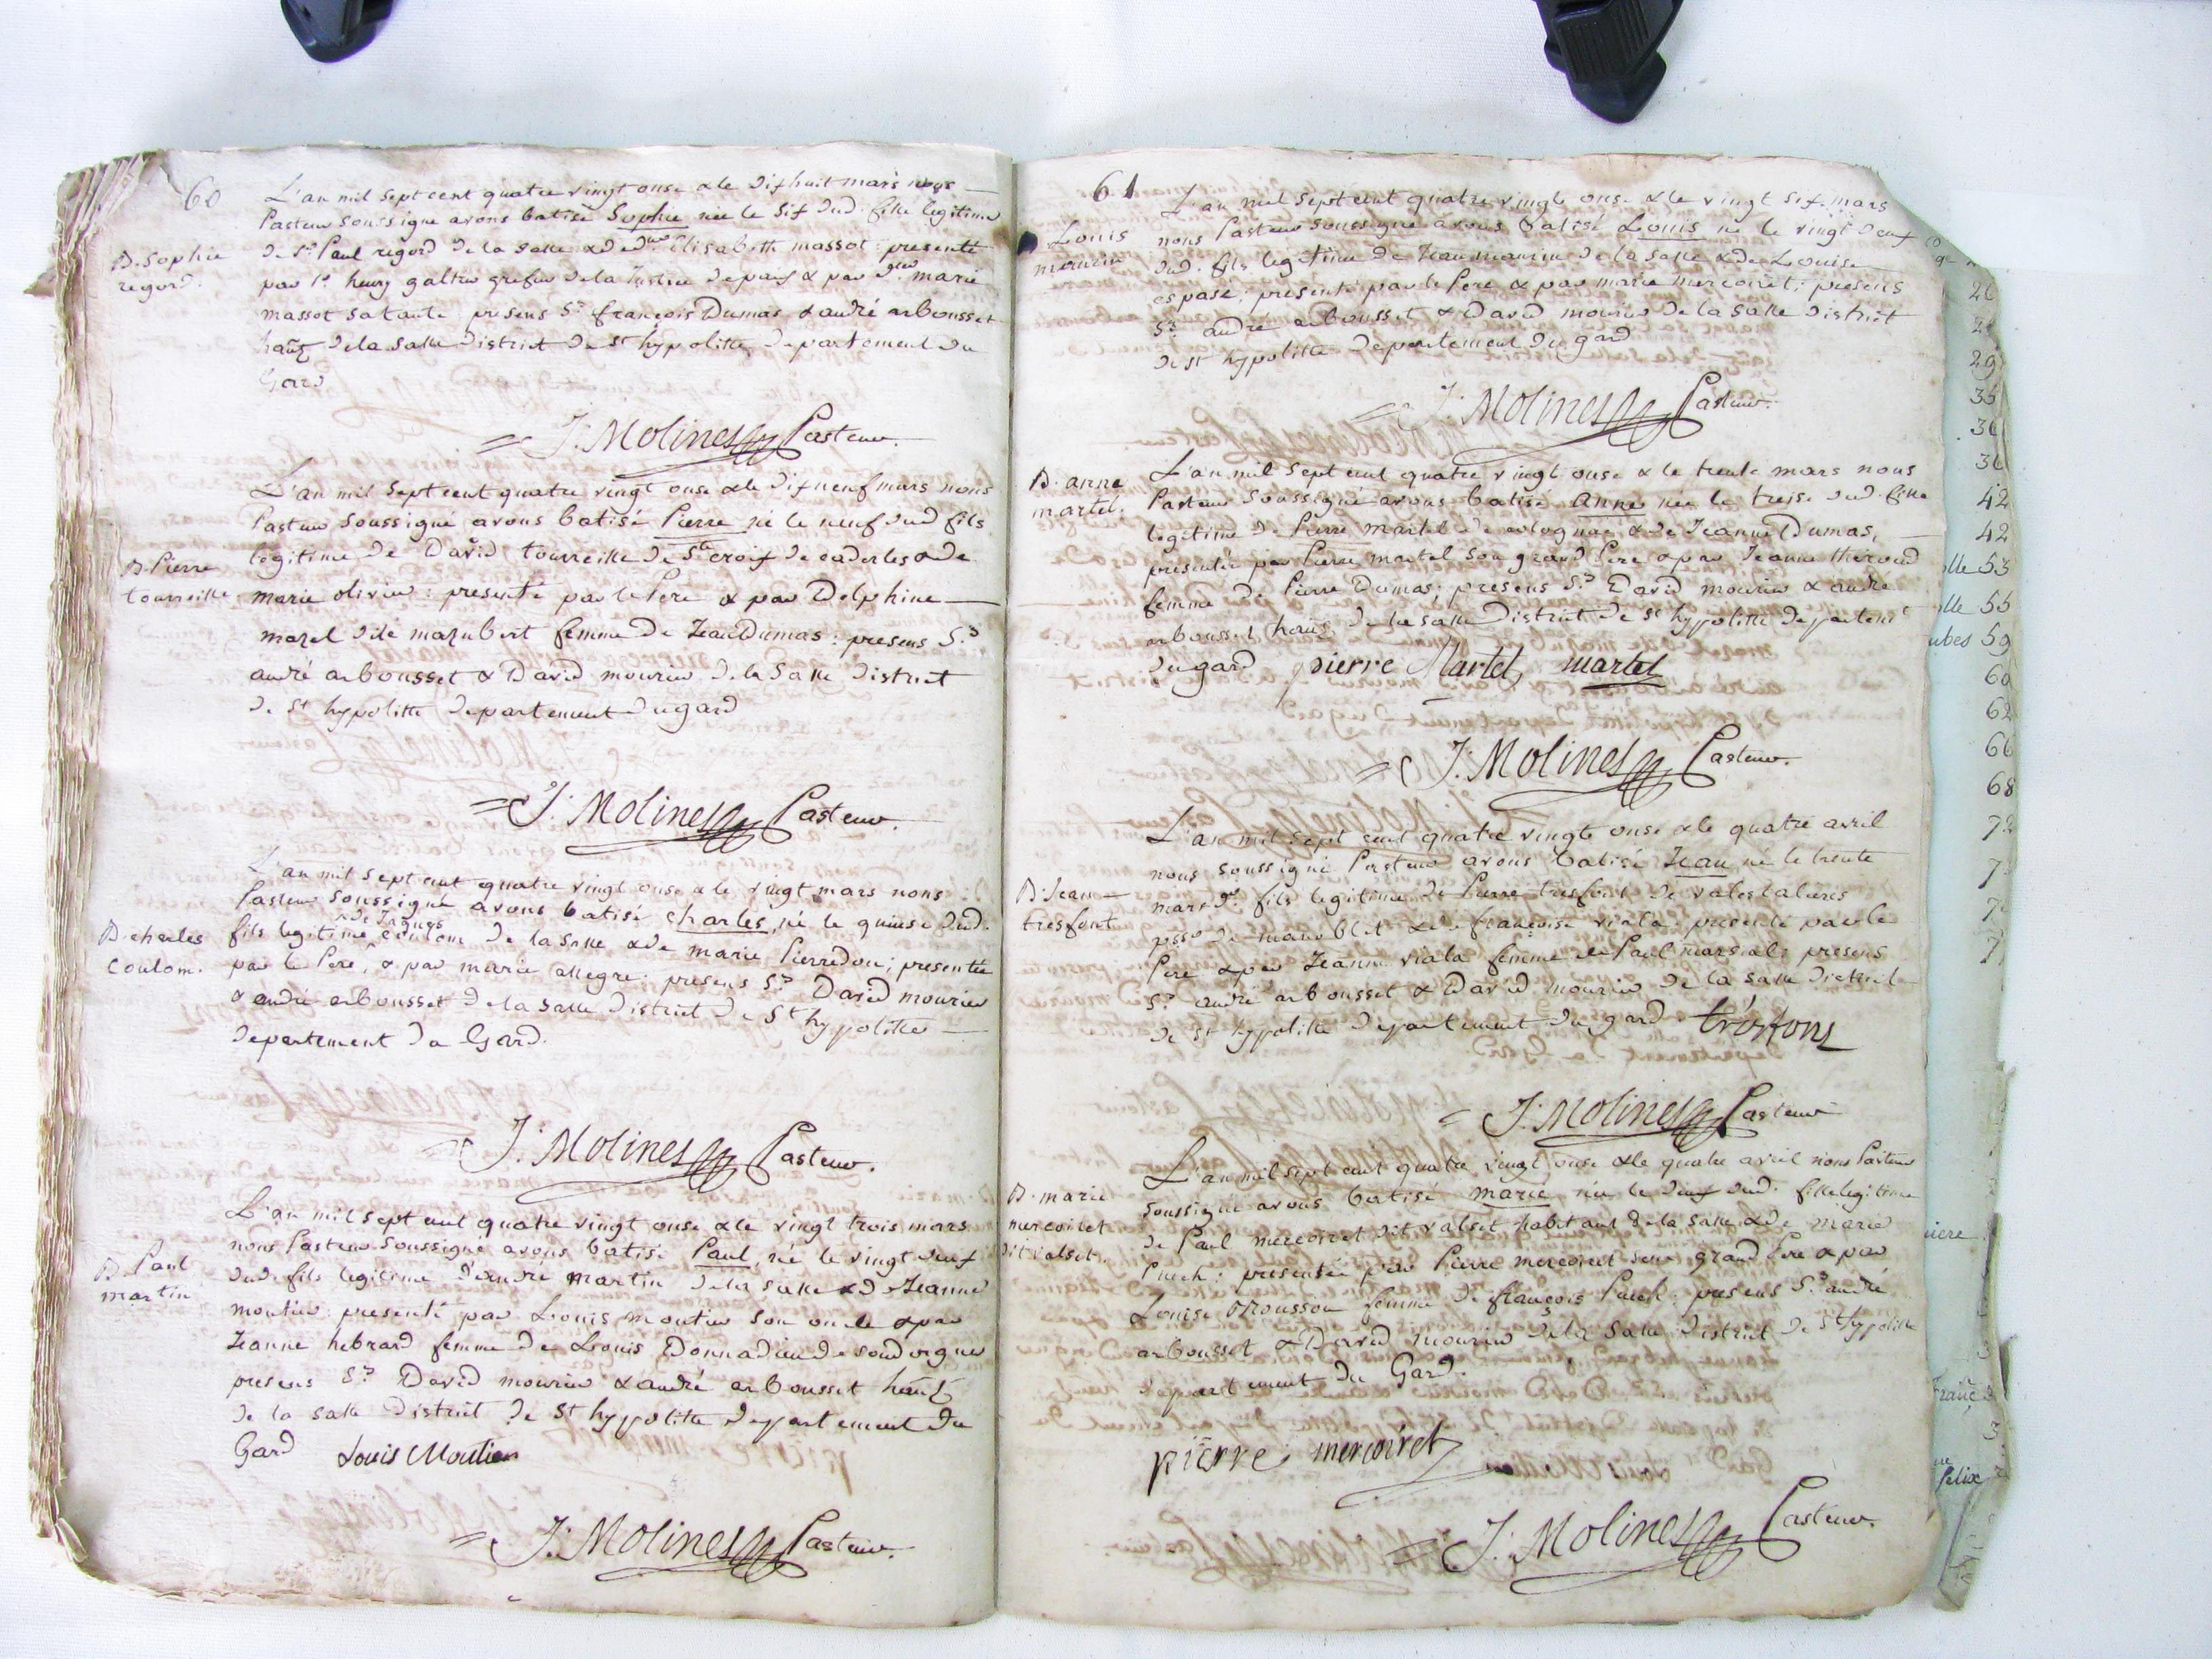 60
L'an mil sept cent quatre vingt onse & le dix huit mars nous
Pasteur soussigné avons batisé Sophie née le six dud. fille legitime
de Sr. Paul regord de la Salle & de dlle Elisabeth massot presenté
par Sr. henry galtier grefier de la Justice de paix & par dlle marie
massot sa tante presens Srs. françois Dumas & andré arbousset
hañts de la Salle District de St hypolitte Departement du
Gard
B. Sophie
regord.
J. Molines Pasteur.
L'an mil sept cent quatre vingt onse & le dix neuf mars nous
Pasteur soussigné avons batisé Pierre né le neuf dud fils
legitime de David tourreille de Ste croix de caderles & de
marie olivier : presenté par le Pere & par Delphine
mazel dite mazubert femme de Jean Dumas : presens Srs.
andré arbousset & David mourier de la Salle District
de St hypolitte Departement du gard
B. Pierre
tourreille
J. Molines Pasteur.
L'an mil sept cent quatre vingt onse & le vingt mars nous
Pasteur soussigné avons batisé charles, né le quinse dud.
de Jaques
fils legitime coulom de la Salle & de marie Pierredon ; presenté
par le Pere, & par marie allegre : presens Srs. David mourier
& andré arbousset de la Salle District de St hypolitte
Departement du Gard.
B. charles
coulom.
J. Molines Pasteur.
L'an mil sept cent quatre vingt onse & le vingt trois mars
nous Pasteur soussigné avons batisé Paul, né le vingt deux
dud. fils legitime d'andré martin de la Salle & de Jeanne
moutier : presenté par Louis moutier son oncle & par
Jeanne hebrard femme de Louis Donnadieu de soudorgues
presens Srs. David mourier & andré arbousset hañts
de la Salle District de St hypolitte departement du
Gard Louis Moutier
B. Paul
martin
J. Molines Pasteur.
61
L'an mil sept cent quatre vingt onse & le vingt six mars
nous Pasteur soussigné avons batisé Louis né le vingt deux
dud. fils legitime de Jean mourier de la Salle & de Louise
espase ; presenté par le Pere & par marie mercoiret ; presens
Srs. andré arbousset & David mourier de la Salle District
de St hypolitte Departement du gard
Louis
J. Molines Pasteur.
L'an mil sept cent quatre vingt onse & le trente mars nous
Pasteur soussigné avons batisé anne née le treise dud. fille
legitime de Pierre martel de & de Jeanne Dumas,
presentée par Pierre martel son grand Pere & par Jeanne therond
femme de Pierre Dumas : presens Srs. David mourier & andré
arbousset hañts de la Salle District de St hypolitte departemt
du gard pierre Martel martel
B. anne
martel.
J. Molines Pasteur.
L'an mil sept cent quatre vingts onse & le quatre avril
nous soussigné Pasteur avons batisé Jean né le trente
mars dr. fils legitime de Pierre tresfont de valestalieres
psse de manoblet & de françoise viala presenté par le
Pere & par Jeanne viala femme de Paul marsial : presens
Srs. andré arbousset & David mourier de la Salle District
de St hypolitte departement du gard trésfons
B. Jean
tresfont
J. Molines Pasteur
L'an mil sept cent quatre vingt onse & le quatre avril nous Pasteur
soussigné avons batisé marie, née le deux dud. fille legitime
de Paul mercoiret dit valset habitant de la Salle & de marie
Puech : presentée par Pierre mercoiret son grand Pere & par
Louise femme de françois Puech : presens Srs. andré
arbousset & David mourier de la Salle District de St hypolitte
departement du Gard.
B. marie
mercoiret
dit valset.
pierre mercoiret
J. Molines Pasteur.
26
29
35
42
42
53
55
59
60
62
66
68
felix